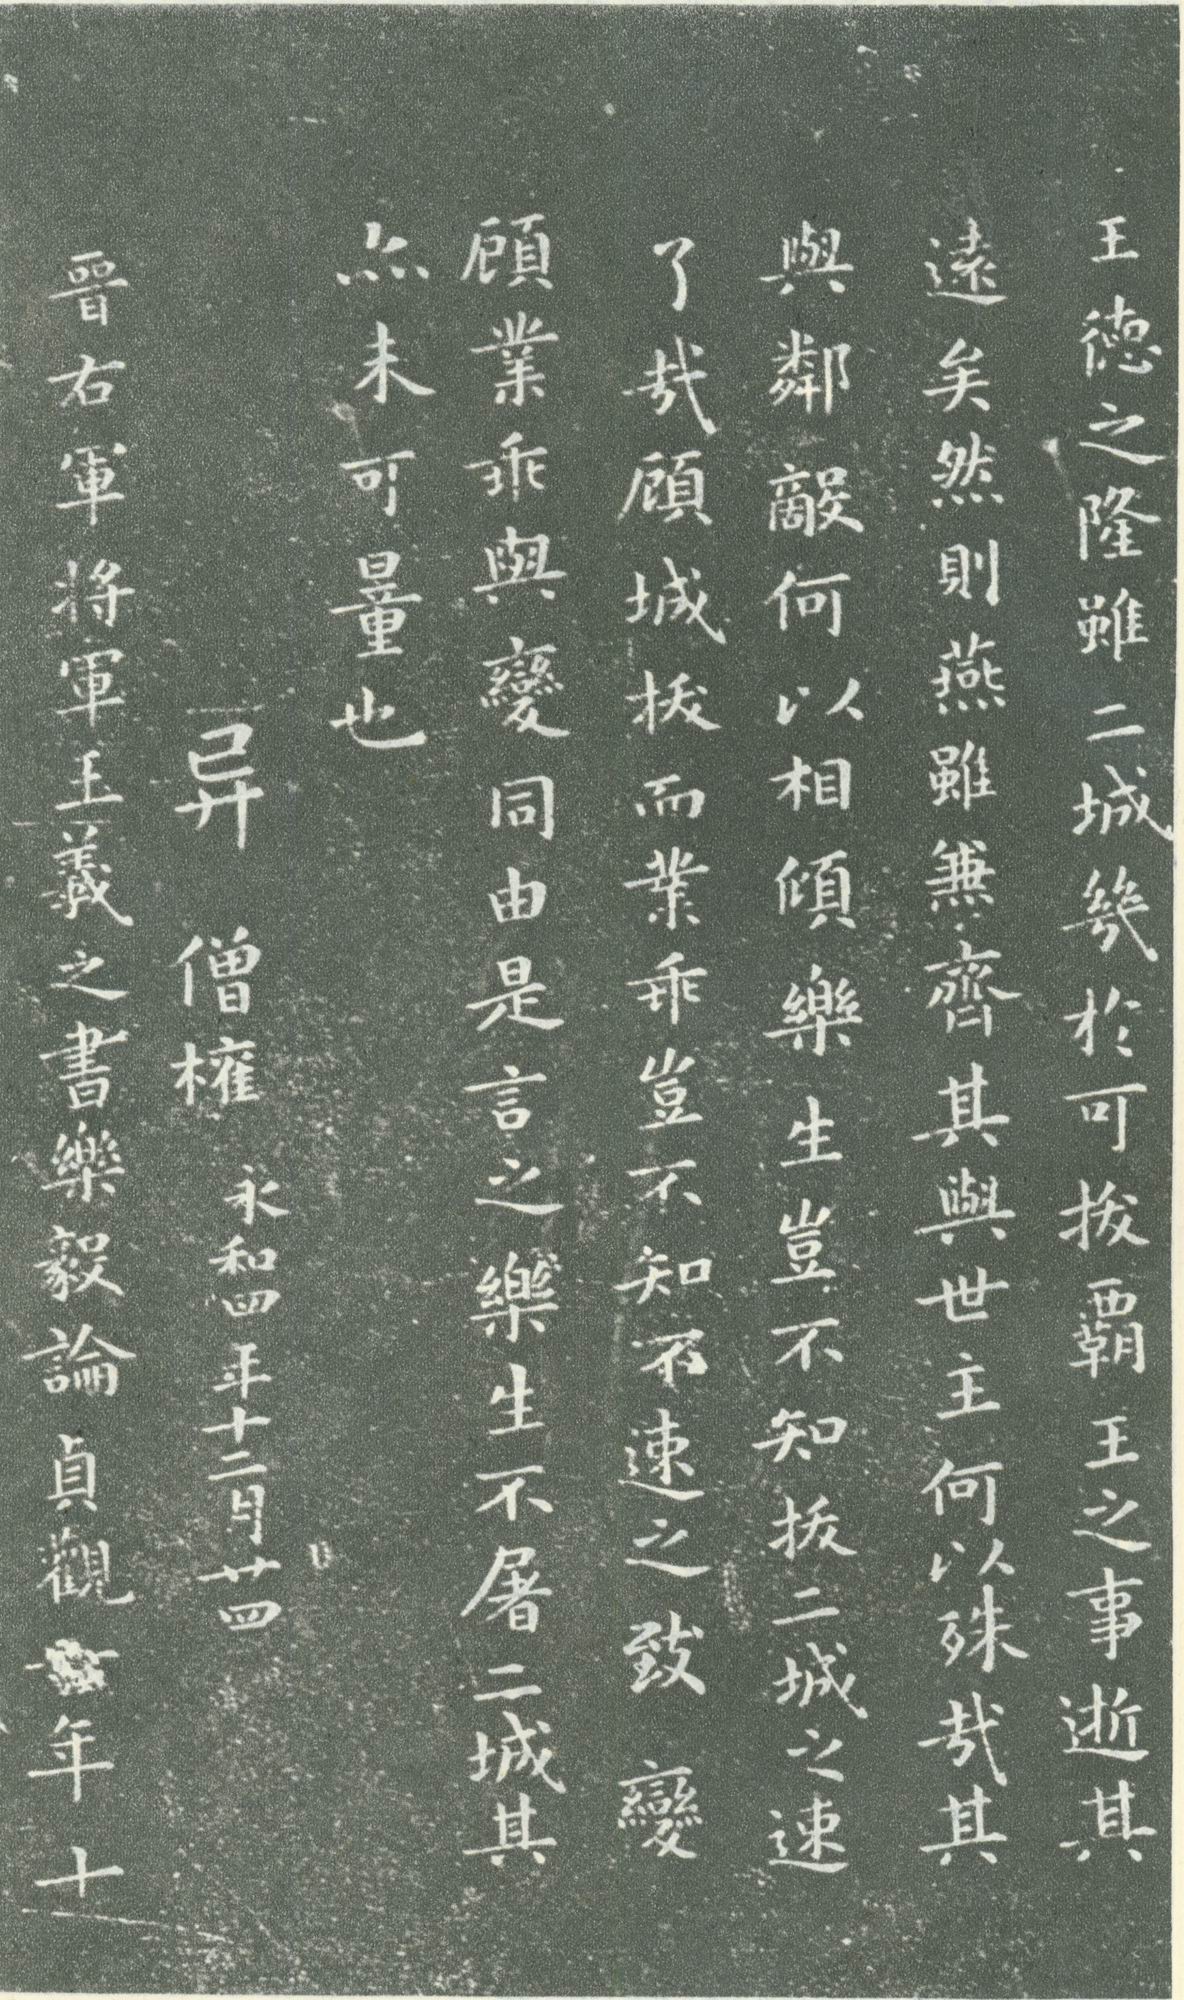 王德之隆雖二城幾於可拔霸王之事逝其
遠矣然則燕雖兼齊其與世主何以殊哉其
與鄰敵何以相傾樂生豈不知拔二城之速
了哉顧城拔而業乖豈不知不速之致變
顧業乖與變同由是言之樂生不屠二城其
亦未可量也
异 僧權 永和四年十二月廿四
晉右軍將軍王羲之書樂毅論貞觀年十